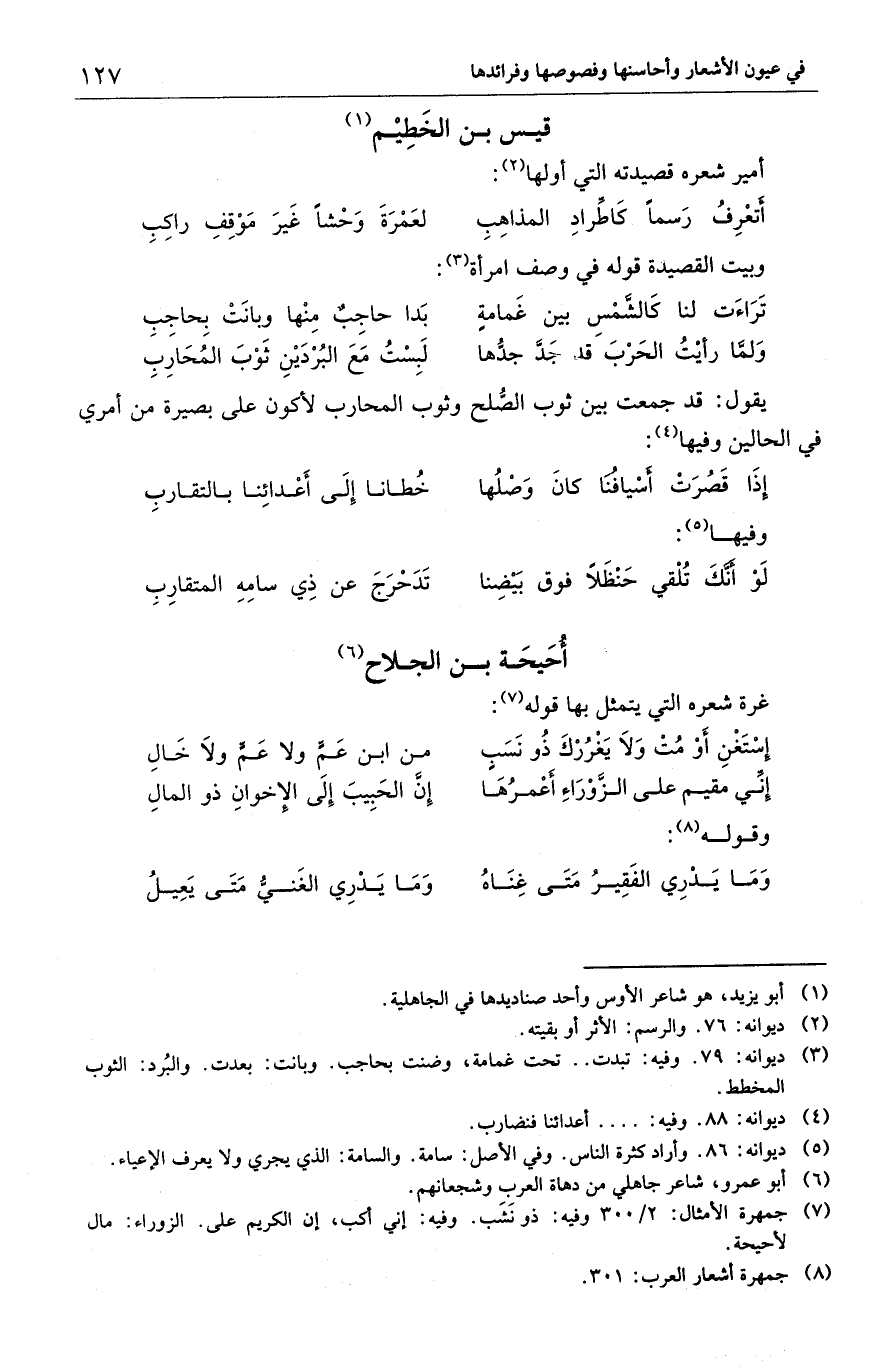 في عيون الأشعار وأحاسنها وفصوصها وفرائدها ١٢٧
قيس بن الخَطِيْم(١)
أمير شعره قصيدته التي أولها(٢):
أَتَعْرِفُ رَسماً كَاطِّرادِ المذاهِبِ لعَمْرَةَ وَحْشاً غَيرَ مَوْقِفِ راكِبِ
وبيت القصيدة قوله في وصف امرأة(٣):
تَرَاءَت لنا كَالشَّمْسِ بين غَمامةٍ بَدا حاجِبٌ مِنْها وبانَتْ بِحاجِبِ
وَلمَّا رأيْتُ الحَرْبَ قد جَدَّ جدُّها لَبِسْتُ مَعَ البُرْدَيْنِ ثَوْبَ المُحَارِبِ
يقول: قد جمعت بين ثوب الصُّلح وثوب المحارب لأكون على بصيرة من أمري
في الحالين وفيها(٤):
إِذَا قَصُرَتْ أَسْيافُنَا كانَ وَصْلُها خُطانا إِلَى أَعْدائِنا بالتقاربِ
وفيها(٥):
لَوْ أَنَّكَ تُلْقي حَنْظَلاً فوق بَيْضِنا تَدَحْرَجَ عن ذِي سامِهِ المتقارِبِ
أُحَيحَة بن الجلاح(٦)
غرة شعره التي يتمثل بها قوله(٧):
إِسْتَغْنِ أَوْ مُتْ وَلَا يَغْرُرْكَ ذُو نَسَبٍ من ابن عَمٍّ ولا عَمٍّ ولاَ خَالِ
إِنِّي مقيم على الزَّوْرَاءِ أَعْمرُهَا إِنَّ الحَبِيبَ إِلَى الإِخوانِ ذو المالِ
وقوله(٨):
وَمَا يَدْرِي الفَقِيرُ مَتَى غِنَاهُ وَمَا يَدْرِي الغَنيُّ مَتَى يَعِيلُ
(١) أبو يزيد، هو شاعر الأوس وأحد صناديدها في الجاهلية.
(٢) ديوانه: ٧٦. والرسم: الأثر أو بقيته.
(٣) ديوانه: ٧٩. وفيه: تبدت.. تحت غمامة، وضنت بحاجب. وبانت: بعدت. والبُرد: الثوب
المخطط.
(٤) ديوانه: ٨٨. وفيه: .... أعدائنا فنضارب.
(٥) ديوانه: ٨٦. وأراد كثرة الناس. وفي الأصل: سامة. والسامة: الذي يجري ولا يعرف الإعياء.
(٦) أبو عمرو، شاعر جاهلي من دهاة العرب وشجعانهم.
(٧) جمهرة الأمثال: ٣٠٠/٢ وفيه: ذو نَشَب. وفيه: إني أكب، إن الكريم على. الزوراء: مال
لأحيحة.
(٨) جمهرة أشعار العرب: ٣٠١.